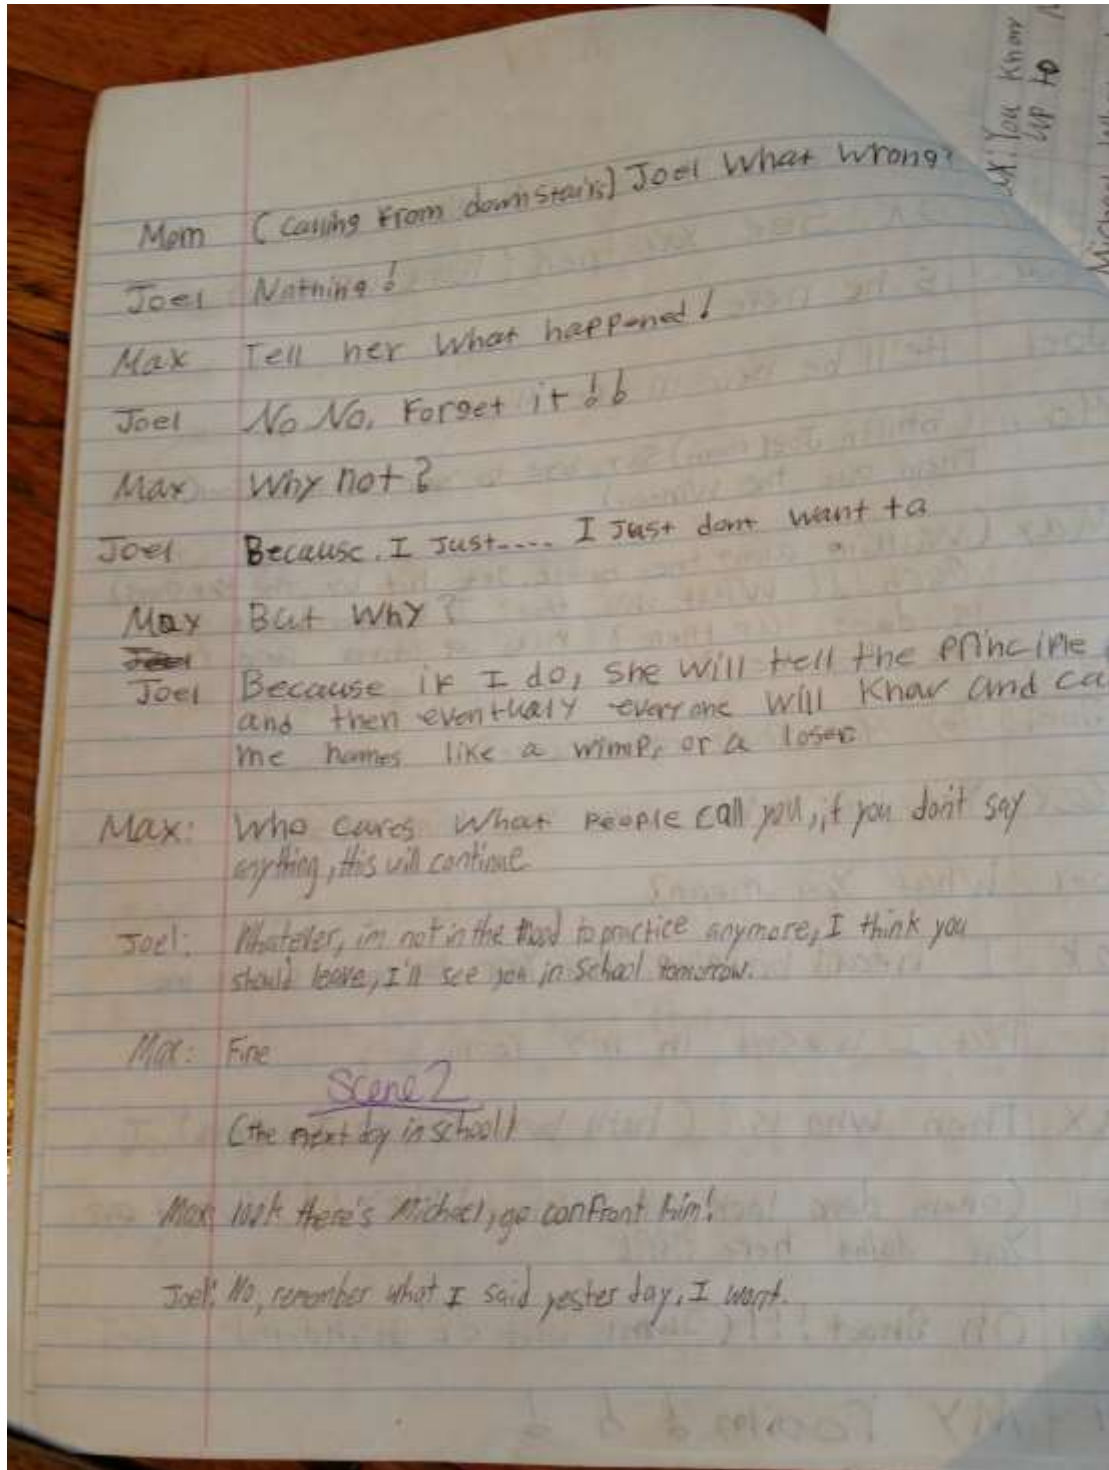 Mom (Calling From downstairs) Joel What Wrong?
Joel Nothing!
Max Tell her What happened!
Joel No No, Forget it!!
Max Why not?
Joel Because. I Just.... I Just dont want ta
Max But Why?
Joel Because if I do, she will tell the Principle
and then eventualy everyone will Know and ca
me names like a wimp, or a loser
Max: Who cares What People call you, if you don't say
anything, this will continue
Joel: Whatever, im not in the Mood to practice anymore, I think you
should leave, I'll see you in school tomorrow.
Max: Fine
Scene 2
(the next day in school)
Max: look there's Michael, go confront him!
Joel: No, remember what I said yester day, I wont.
You Know
up to
Michael